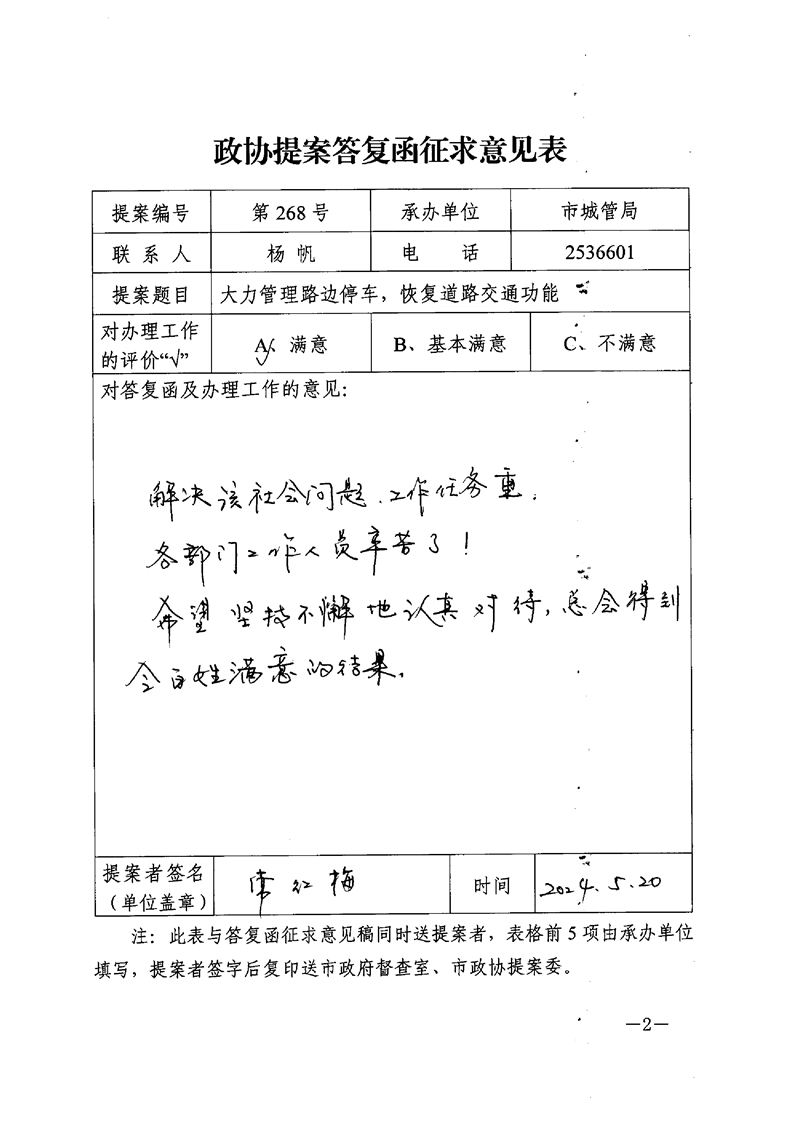 政协提案答复函征求意见表
提案编号 第 268 号 承办单位 市城管局
联 系 人 杨 帆 电 话 2536601
提案题目 大力管理路边停车，恢复道路交通功能
对办理工作
的评价“√” A、满意 B、基本满意 C、不满意
对答复函及办理工作的意见：
解决该社会问题、工作任务重，
各部门工作人员辛苦了！
希望坚持不懈地认真对待，总会得到
令百姓满意的结果。
提案者签名
（单位盖章） 红梅 时间 2024.5.20
注：此表与答复函征求意见稿同时送提案者，表格前 5 项由承办单位
填写，提案者签字后复印送市政府督查室、市政协提案委。
—2—